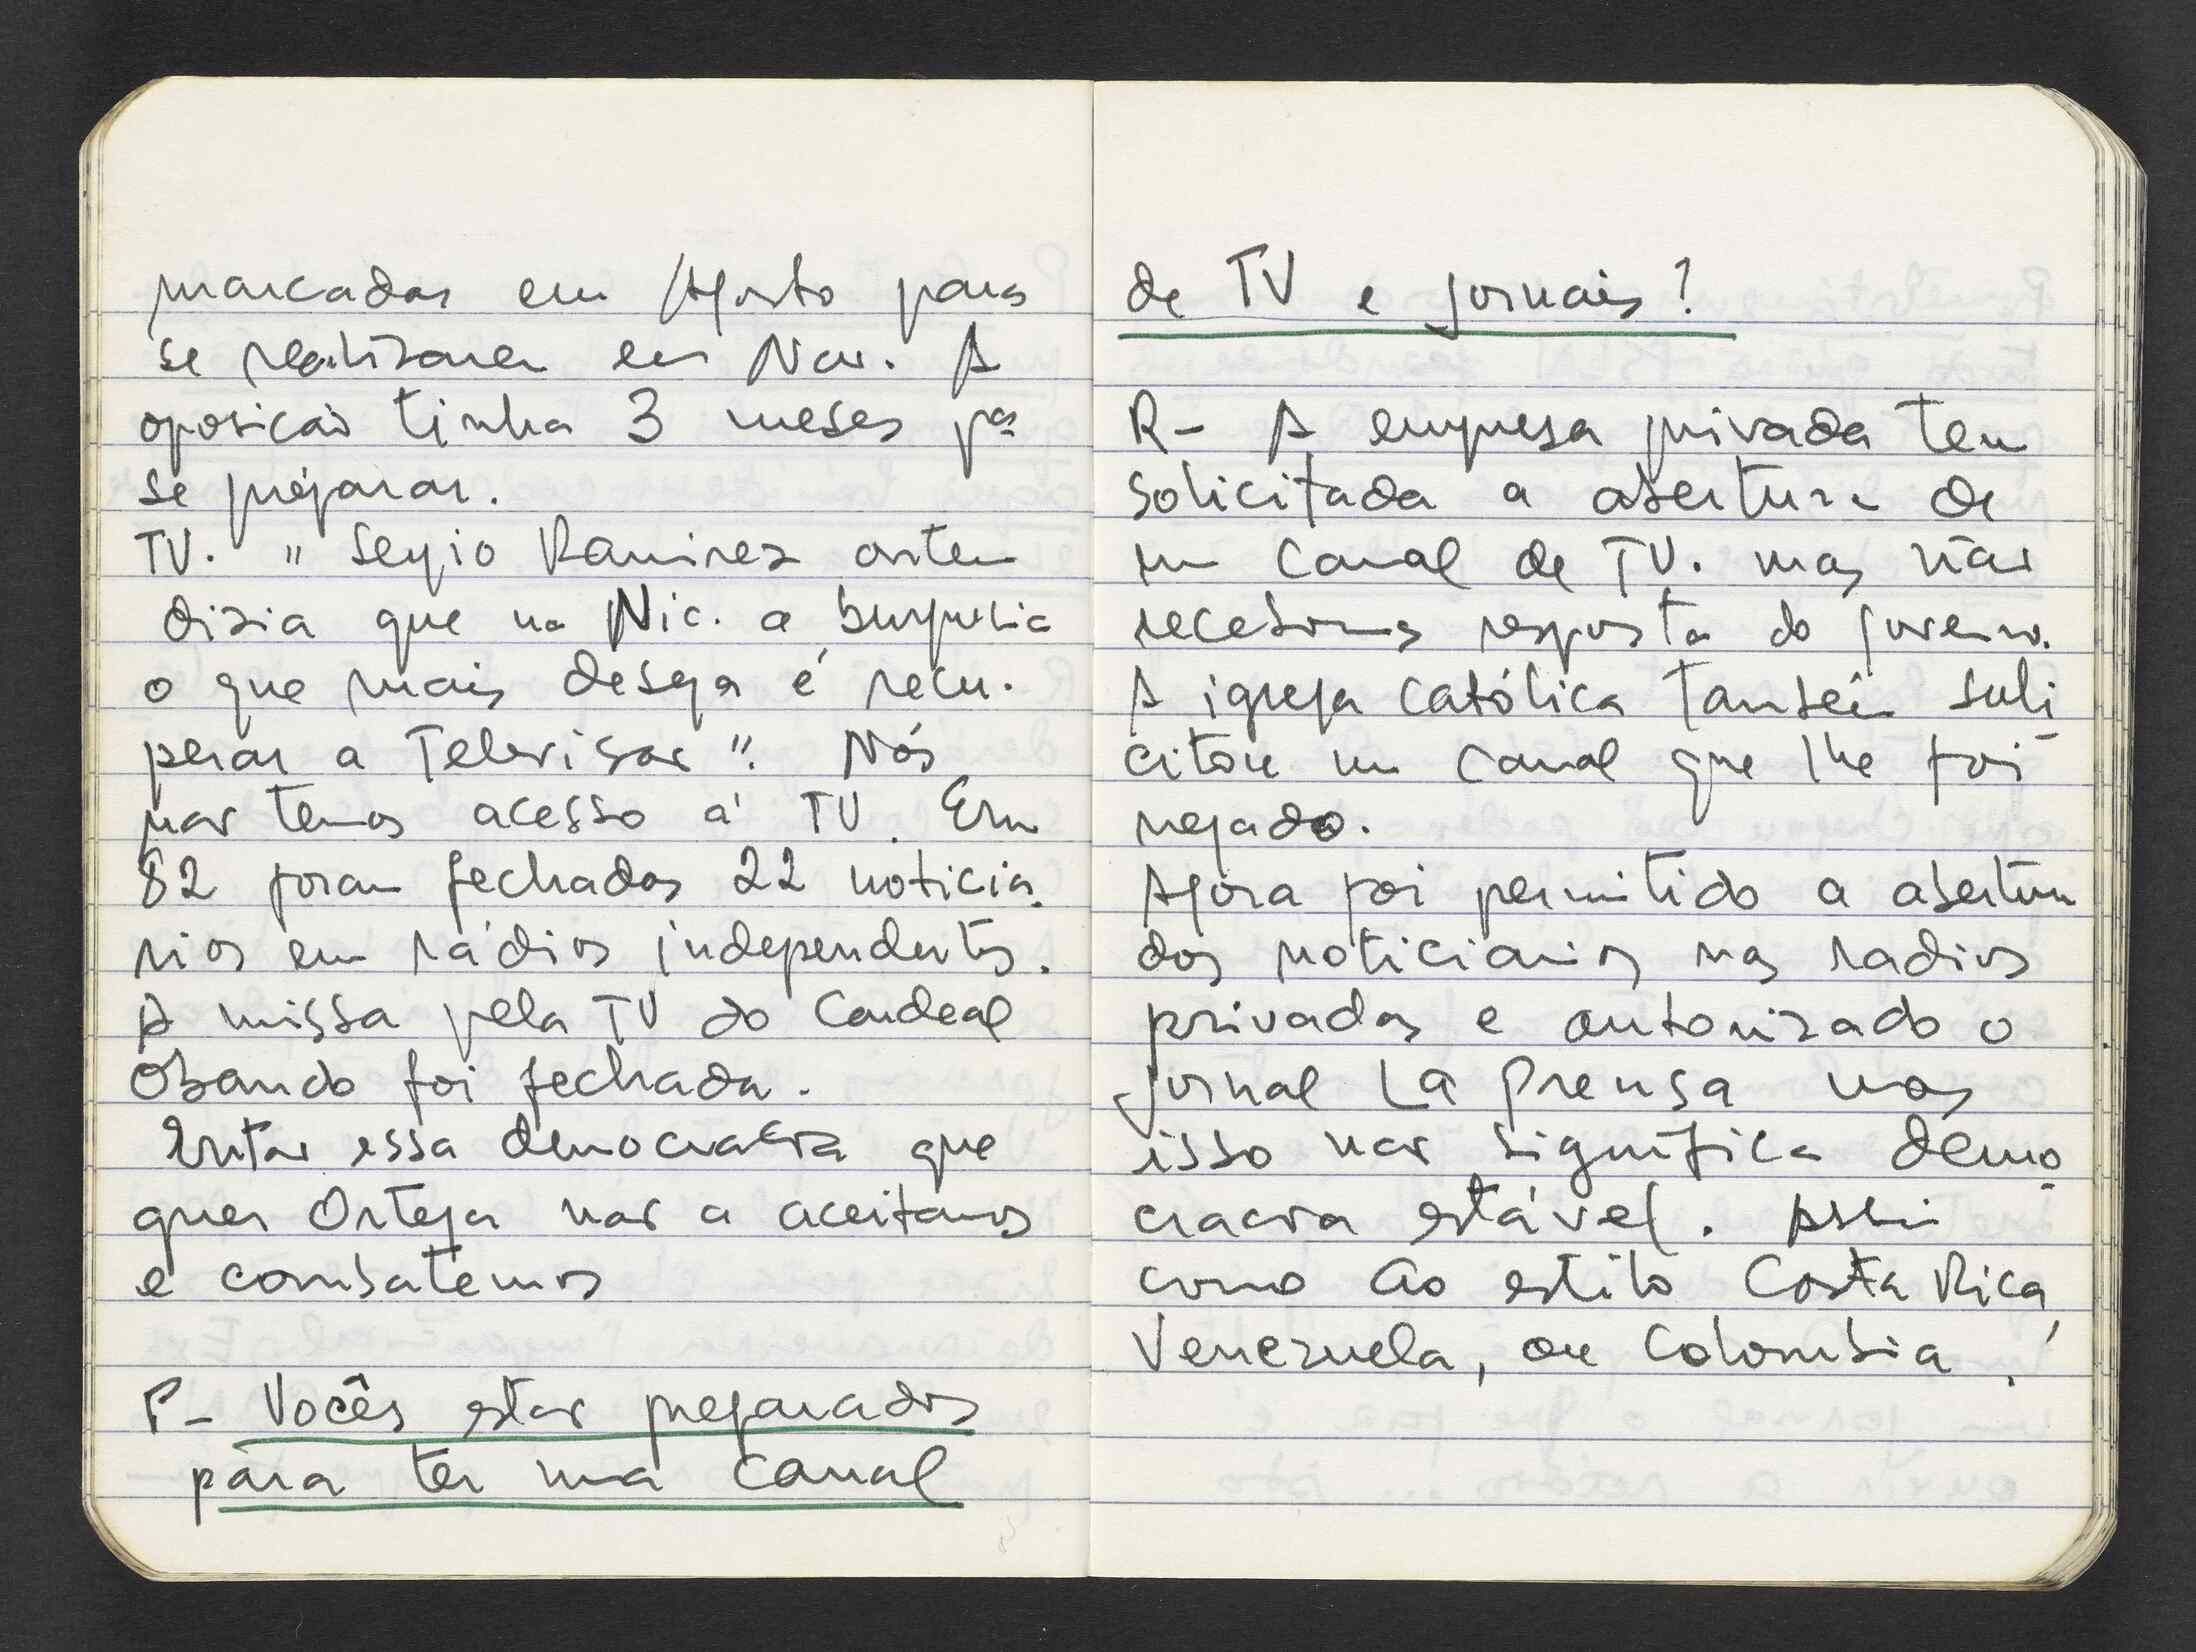 marcadas em Agosto para
se realizarem em Nov. A
oposição tinha 3 meses pra
se preparar.
TV. " Sergio Ramirez ontem
dizia que na Nic. a burguesia
o que mais deseja é recu-
perar a Televisão". Nós
não temos acesso á TV. Em
82 foram fechados 22 noticiá-
rios em rádios independentes.
A missa pela TV do Cardeal
Obando foi fechada.
Então essa democracia que
quer Ortega não a aceitamos
e combatemos
P- Vocês estão preparados
para ter um canal
de TV e jornais?
R- A empresa privada tem
solicitada a abertura de
um canal de TV. mas não
recebemos resposta do governo.
A igreja católica também soli-
citou um canal que lhe foi
negado.
Agora foi permitido a abertura
dos noticiarios nas radios
privadas e autorizado o
jornal La Prensa mas
isso não significa demo-
cracia estável. Assim
como ao estilo Costa Rica,
Venezuela, ou Colombia.